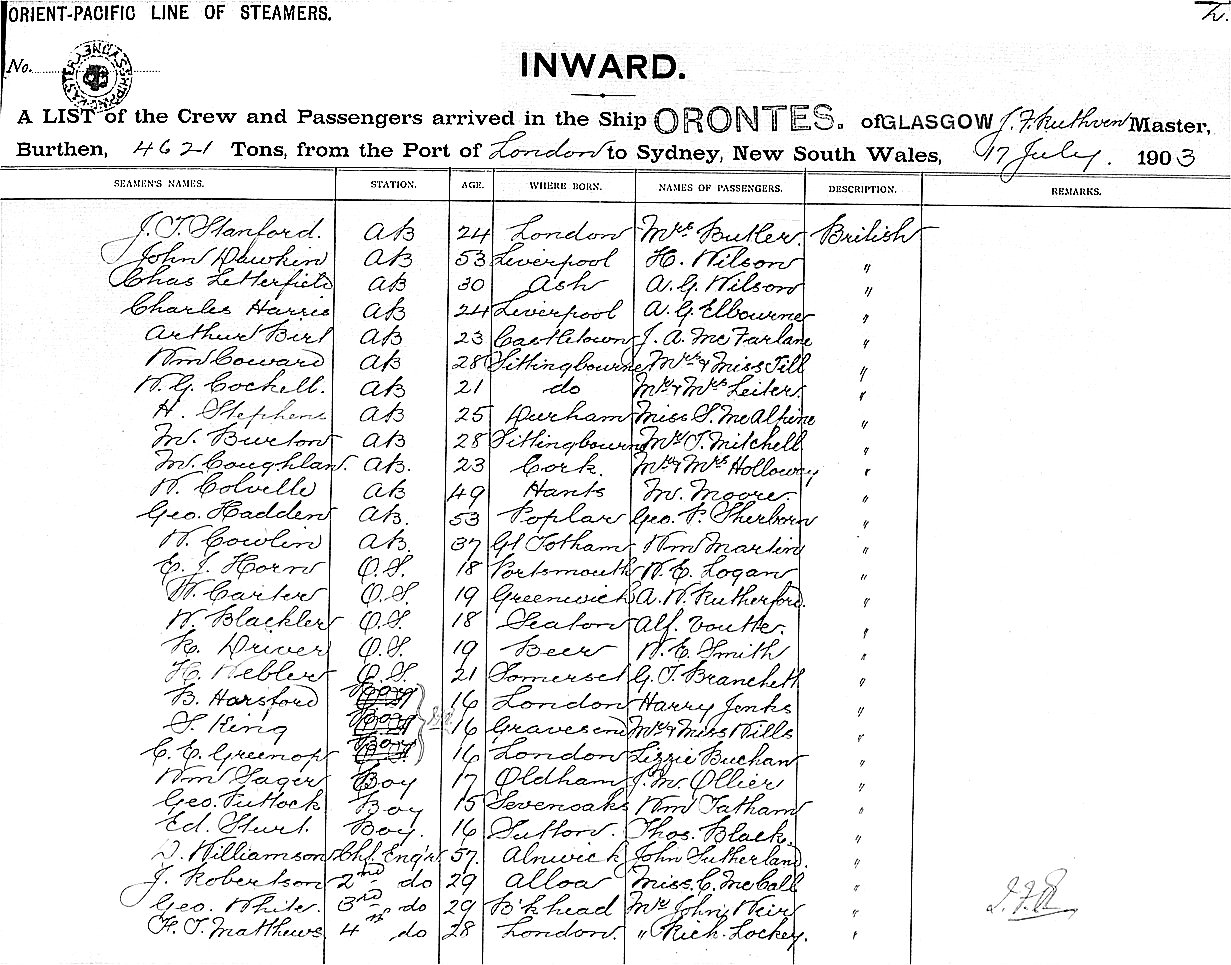 ORIENT-PACIFIC LINE OF STEAMERS.
No.
INWARD.
A LIST of the Crew and Passengers arrived in the Ship ORONTES. of GLASGOW J. F. Ruthven Master,
Burthen, 4621 Tons, from the Port of London to Sydney, New South Wales, 17 July. 1903
SEAMEN'S NAMES. STATION. AGE. WHERE BORN. NAMES OF PASSENGERS. DESCRIPTION. REMARKS.
J. T. Stanford. AB 24 London Mrs Butler. British
John Dawkin AB 53 Liverpool H. Wilson "
Chas Letterfield AB 30 Ash A. G. Wilson "
Charles Harris AB 24 Liverpool A. G. Elbourne "
Arthur Birt AB 23 Castletown J. A. McFarlane "
Wm Coward AB 28 Sittingbourne Mrs & Miss Till "
W. G. Cockell. AB 21 do Mr & Mrs Leiter. "
H. Stephens AB 25 Durham Miss S. McAlpine "
M. Burton AB 28 Sittingbourne J. Mitchell "
M. Coughlan. AB. 23 Cork. Mr & Mrs Holloway "
W. Colville AB 49 Hants M. Moore. "
Geo. Hadden AB. 53 Poplar Geo. P. Sherborn "
W. Cowlin AB. 37 Gt Totham Wm Martin "
E. J. Horn O.S. 18 Portsmouth W. E. Logan "
W. Carter O.S. 19 Greenwich A. W. Rutherford. "
W. Blackler O.S. 18 Seaton Alf. Voutte. "
K. Driver O.S. 19 Beer W. E. Smith "
H. Webler O.S. 21 Somerset G. T. Branchett "
B. Harsford Boy 16 London Harry Jenks "
S. King Boy 16 Gravesend Mr & Miss Wills "
C. E. Greenop Boy 16 London Lizzie Buchan "
Wm Sager Boy 17 Oldham J. M. Ollier "
Geo. Puttock Boy 15 Sevenoaks Wm Tatham "
Ed. Sturt. Boy. 16 Sutton. Thos. Black. "
D. Williamson Chf. Eng'r 57. Alnwick John Sutherland. "
J. Robertson 2nd do 29 Alloa Miss C. McCall "
Geo. White. 3rd do 29 B'khead Mr John Weir "
H. T. Matthews. 4th do 28 London. " Rich. Lockey. "